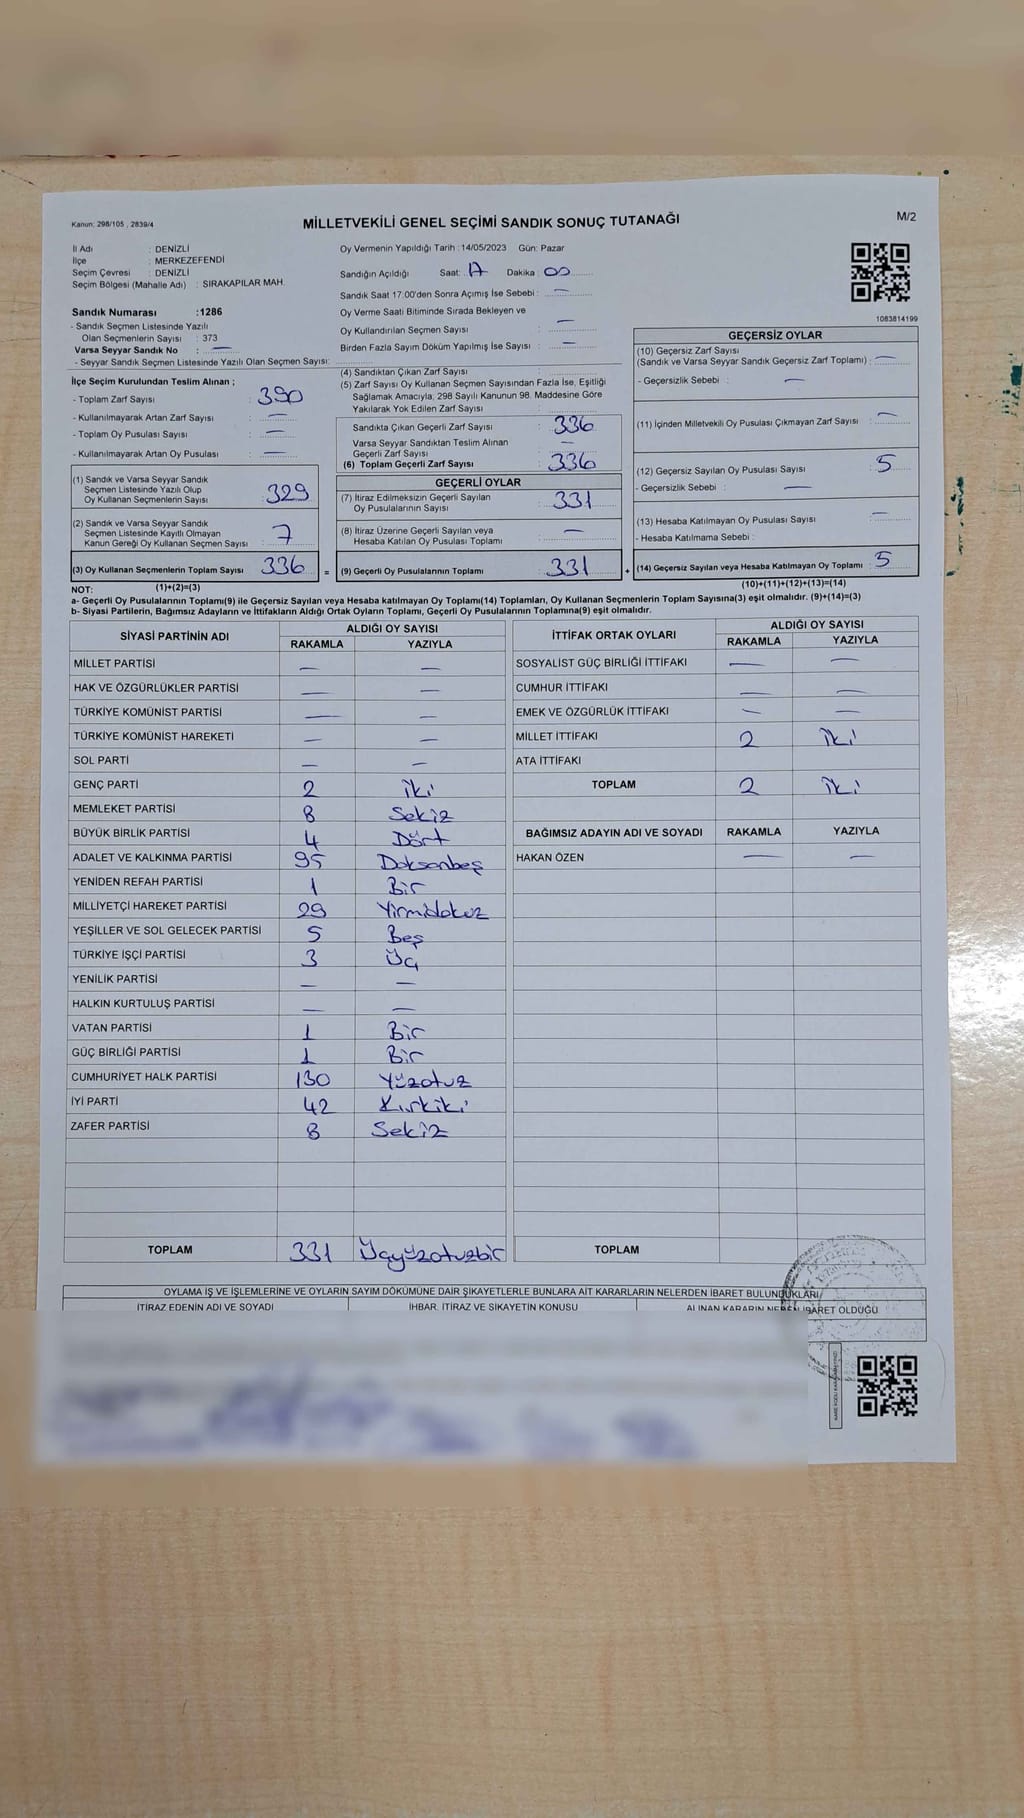 Kanun: 298/105 , 2839/4
MİLLETVEKİLİ GENEL SEÇİMİ SANDIK SONUÇ TUTANAĞI
M/2
İl Adı : DENİZLİ
İlçe : MERKEZEFENDİ
Seçim Çevresi : DENİZLİ
Seçim Bölgesi (Mahalle Adı) : SIRAKAPILAR MAH.
Sandık Numarası :1286
- Sandık Seçmen Listesinde Yazılı
Olan Seçmenlerin Sayısı : 373
Varsa Seyyar Sandık No : —
- Seyyar Sandık Seçmen Listesinde Yazılı Olan Seçmen Sayısı:
Oy Vermenin Yapıldığı Tarih :14/05/2023 Gün: Pazar
Sandığın Açıldığı Saat: 17 Dakika : 00
Sandık Saat 17:00'den Sonra Açımış İse Sebebi : —
Oy Verme Saati Bitiminde Sırada Bekleyen ve
Oy Kullandırılan Seçmen Sayısı : —
Birden Fazla Sayım Döküm Yapılmış İse Sayısı : —
1083814199
İlçe Seçim Kurulundan Teslim Alınan ;
- Toplam Zarf Sayısı : 390
- Kullanılmayarak Artan Zarf Sayısı : —
- Toplam Oy Pusulası Sayısı : —
- Kullanılmayarak Artan Oy Pusulası : —
(1) Sandık ve Varsa Seyyar Sandık
Seçmen Listesinde Yazılı Olup
Oy Kullanan Seçmenlerin Sayısı : 329
(2) Sandık ve Varsa Seyyar Sandık
Seçmen Listesinde Kayıtlı Olmayan
Kanun Gereği Oy Kullanan Seçmen Sayısı : 7
(3) Oy Kullanan Seçmenlerin Toplam Sayısı : 336
(4) Sandıktan Çıkan Zarf Sayısı :
(5) Zarf Sayısı Oy Kullanan Seçmen Sayısından Fazla İse, Eşitliği
Sağlamak Amacıyla, 298 Sayılı Kanunun 98. Maddesine Göre
Yakılarak Yok Edilen Zarf Sayısı :
Sandıkta Çıkan Geçerli Zarf Sayısı : 336
Varsa Seyyar Sandıktan Teslim Alınan
Geçerli Zarf Sayısı : —
(6) Toplam Geçerli Zarf Sayısı : 336
GEÇERLİ OYLAR
(7) İtiraz Edilmeksizin Geçerli Sayılan
Oy Pusulalarının Sayısı : 331
(8) İtiraz Üzerine Geçerli Sayılan veya
Hesaba Katılan Oy Pusulası Toplamı : —
= (9) Geçerli Oy Pusulalarının Toplamı : 331
GEÇERSİZ OYLAR
(10) Geçersiz Zarf Sayısı
(Sandık ve Varsa Seyyar Sandık Geçersiz Zarf Toplamı) : —
- Geçersizlik Sebebi : —
(11) İçinden Milletvekili Oy Pusulası Çıkmayan Zarf Sayısı : —
(12) Geçersiz Sayılan Oy Pusulası Sayısı : 5
- Geçersizlik Sebebi : —
(13) Hesaba Katılmayan Oy Pusulası Sayısı : —
- Hesaba Katılmama Sebebi :
+ (14) Geçersiz Sayılan veya Hesaba Katılmayan Oy Toplamı : 5
NOT: (1)+(2)=(3)
(10)+(11)+(12)+(13)=(14)
a- Geçerli Oy Pusulalarının Toplamı(9) ile Geçersiz Sayılan veya Hesaba katılmayan Oy Toplamı(14) Toplamları, Oy Kullanan Seçmenlerin Toplam Sayısına(3) eşit olmalıdır. (9)+(14)=(3)
b- Siyasi Partilerin, Bağımsız Adayların ve İttifakların Aldığı Ortak Oyların Toplamı, Geçerli Oy Pusulalarının Toplamına(9) eşit olmalıdır.
SİYASİ PARTİNİN ADI ALDIĞI OY SAYISI
RAKAMLA YAZIYLA
MİLLET PARTİSİ — —
HAK VE ÖZGÜRLÜKLER PARTİSİ — —
TÜRKİYE KOMÜNİST PARTİSİ — —
TÜRKİYE KOMÜNİST HAREKETİ — —
SOL PARTİ — —
GENÇ PARTİ 2 iki
MEMLEKET PARTİSİ 8 Sekiz
BÜYÜK BİRLİK PARTİSİ 4 Dört
ADALET VE KALKINMA PARTİSİ 95 Doksanbeş
YENİDEN REFAH PARTİSİ 1 Bir
MİLLİYETÇİ HAREKET PARTİSİ 29 Yirmidokuz
YEŞİLLER VE SOL GELECEK PARTİSİ 5 Beş
TÜRKİYE İŞÇİ PARTİSİ 3 Üç
YENİLİK PARTİSİ — —
HALKIN KURTULUŞ PARTİSİ — —
VATAN PARTİSİ 1 Bir
GÜÇ BİRLİĞİ PARTİSİ 1 Bir
CUMHURİYET HALK PARTİSİ 130 Yüzotuz
İYİ PARTİ 42 Kırkiki
ZAFER PARTİSİ 8 Sekiz
TOPLAM 331 Üçyüzotuzbir
İTTİFAK ORTAK OYLARI ALDIĞI OY SAYISI
RAKAMLA YAZIYLA
SOSYALİST GÜÇ BİRLİĞİ İTTİFAKI — —
CUMHUR İTTİFAKI — —
EMEK VE ÖZGÜRLÜK İTTİFAKI — —
MİLLET İTTİFAKI 2 iki
ATA İTTİFAKI
TOPLAM 2 iki
BAĞIMSIZ ADAYIN ADI VE SOYADI RAKAMLA YAZIYLA
HAKAN ÖZEN — —
TOPLAM
OYLAMA İŞ VE İŞLEMLERİNE VE OYLARIN SAYIM DÖKÜMÜNE DAİR ŞİKAYETLERLE BUNLARA AİT KARARLARIN NELERDEN İBARET BULUNDUKLARI
İTİRAZ EDENİN ADI VE SOYADI İHBAR, İTİRAZ VE ŞİKAYETİN KONUSU ALINAN KARARIN NEDEN İBARET OLDUĞU